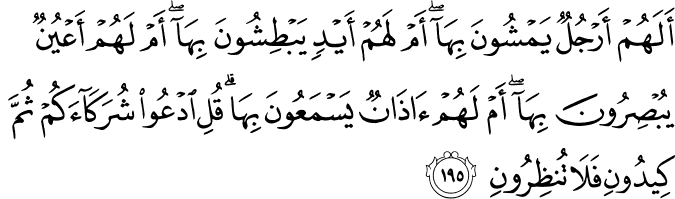 أَلَهُمْ أَرْجُلٌ يَمْشُونَ بِهَآ ۖ أَمْ لَهُمْ أَيْدٍ يَبْطِشُونَ بِهَآ ۖ أَمْ لَهُمْ أَعْيُنٌ
يُبْصِرُونَ بِهَآ ۖ أَمْ لَهُمْ ءَاذَانٌ يَسْمَعُونَ بِهَا ۗ قُلِ ٱدْعُوا۟ شُرَكَآءَكُمْ ثُمَّ
كِيدُونِ فَلَا تُنظِرُونِ ۝١٩٥